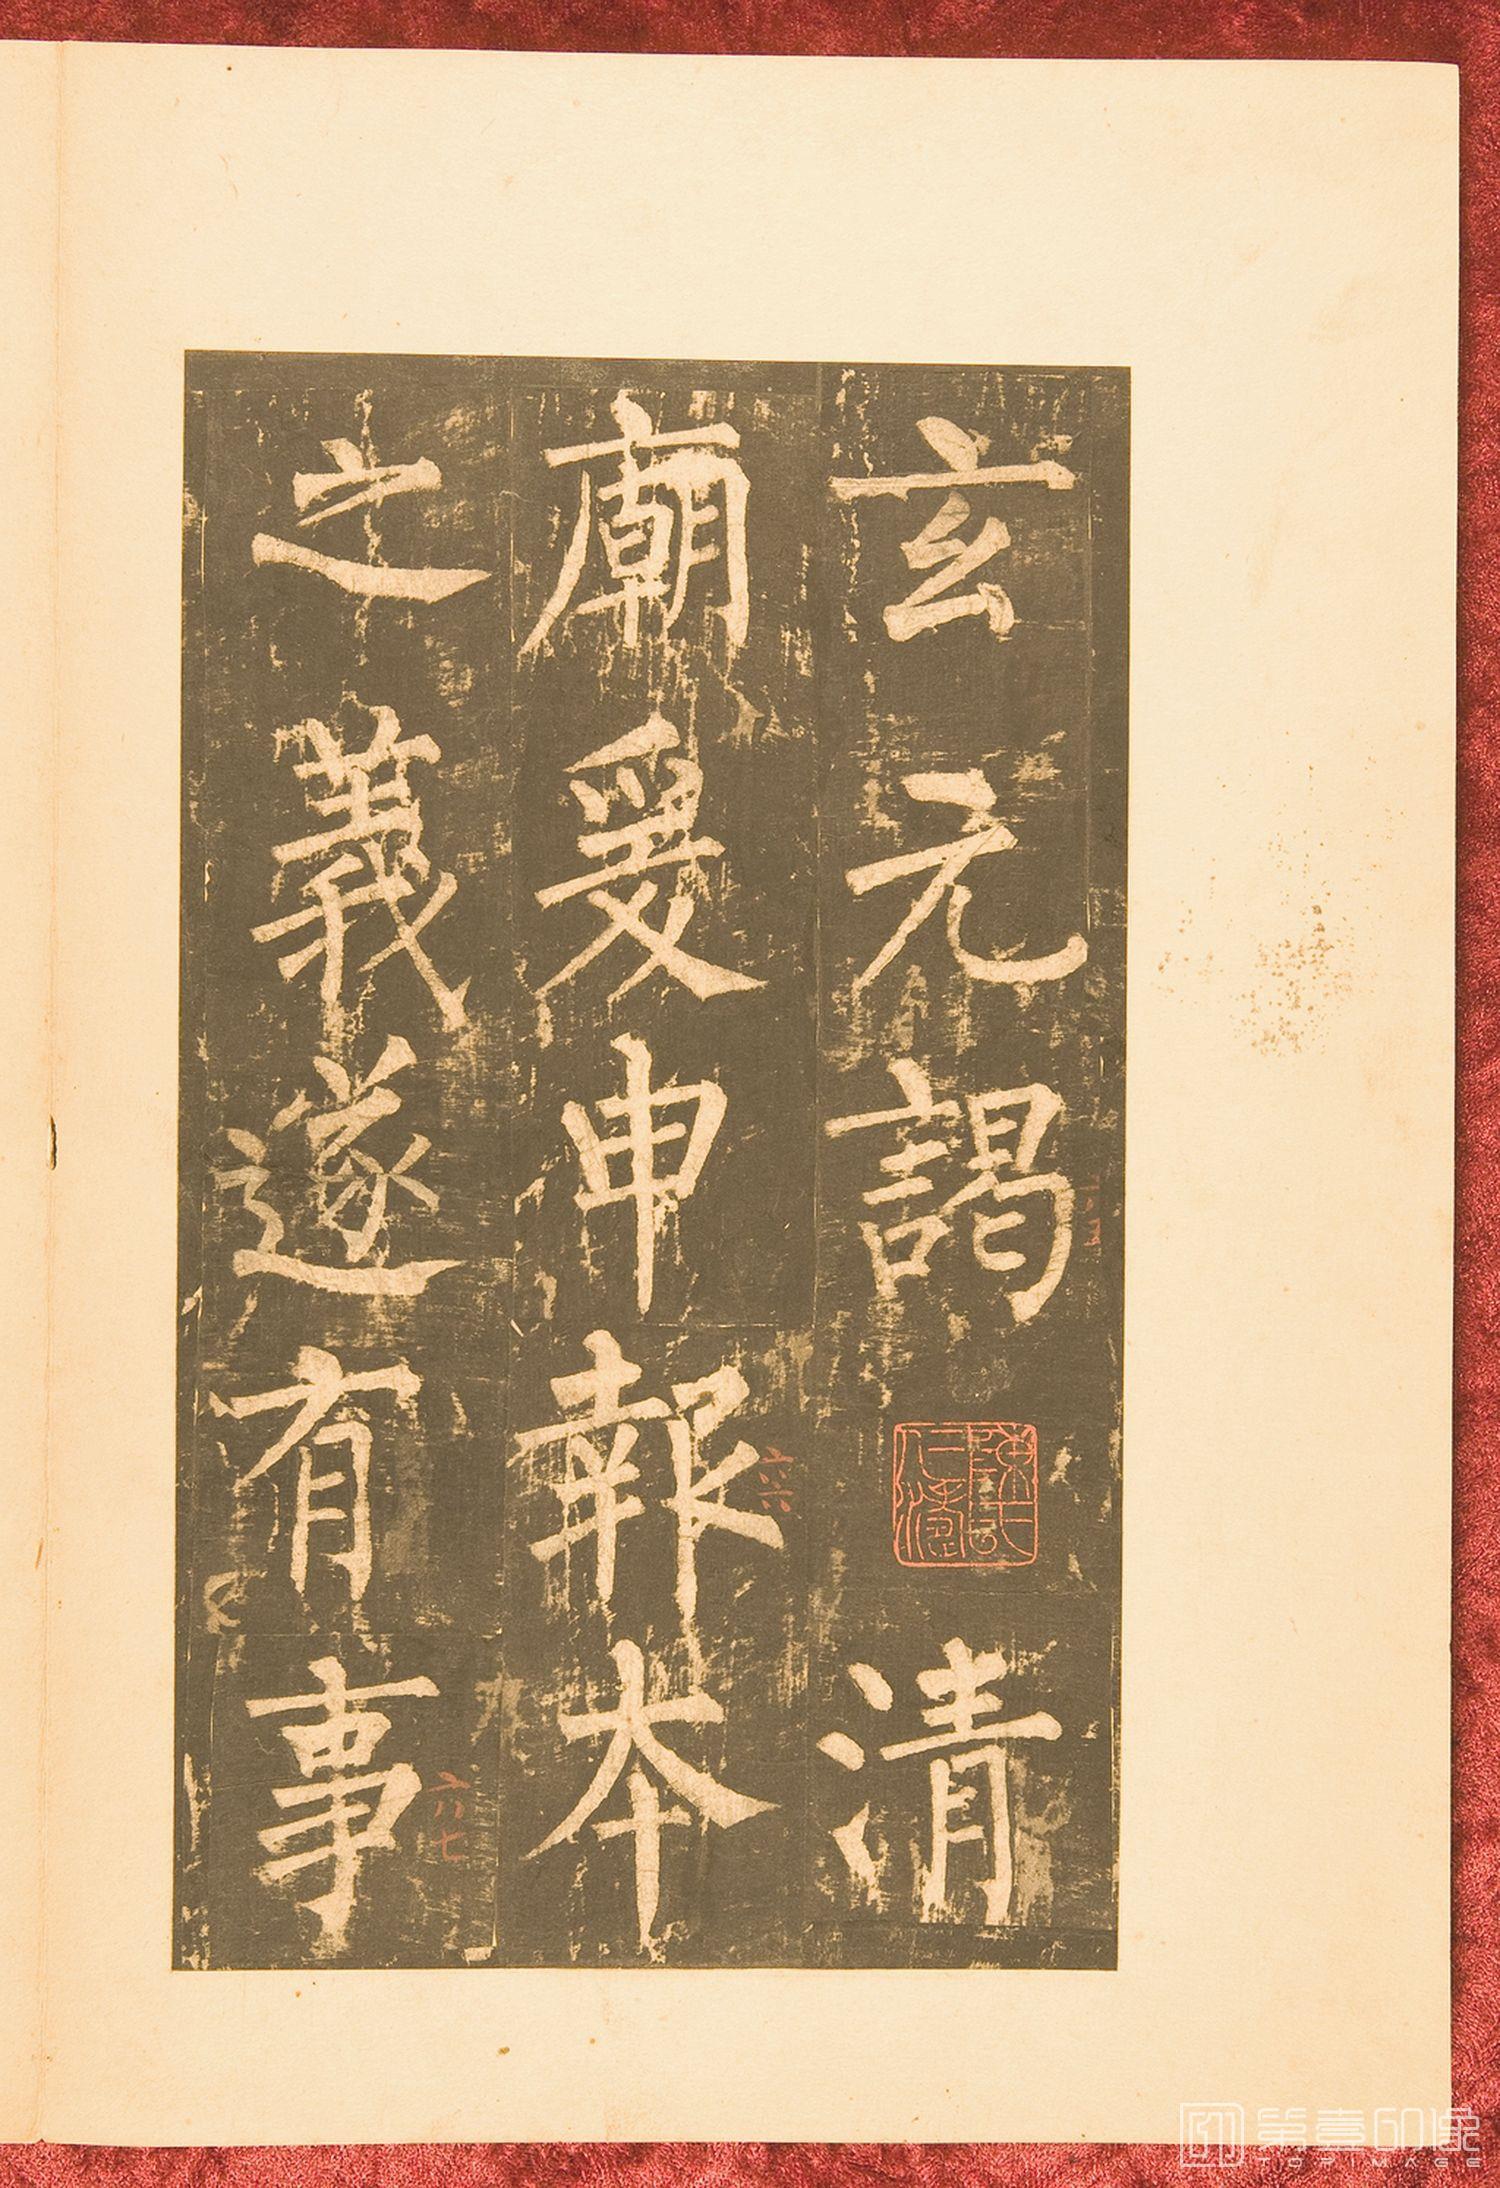 玄元謁清
廟爰申報本
之義遂有事
六六
六七
第壹印像
TOPIMAGE